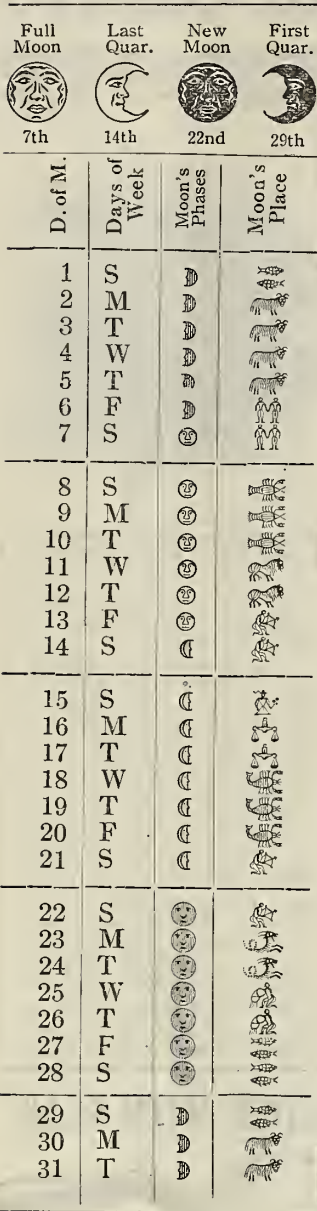 Full Moon Last Quar. New Moon First Quar.
7th 14th 22nd 29th
D. of M. Days of Week Moon's Phases Moon's Place
1 S
2 M
3 T
4 W
5 T
6 F
7 S
8 S
9 M
10 T
11 W
12 T
13 F
14 S
15 S
16 M
17 T
18 W
19 T
20 F
21 S
22 S
23 M
24 T
25 W
26 T
27 F
28 S
29 S
30 M
31 T